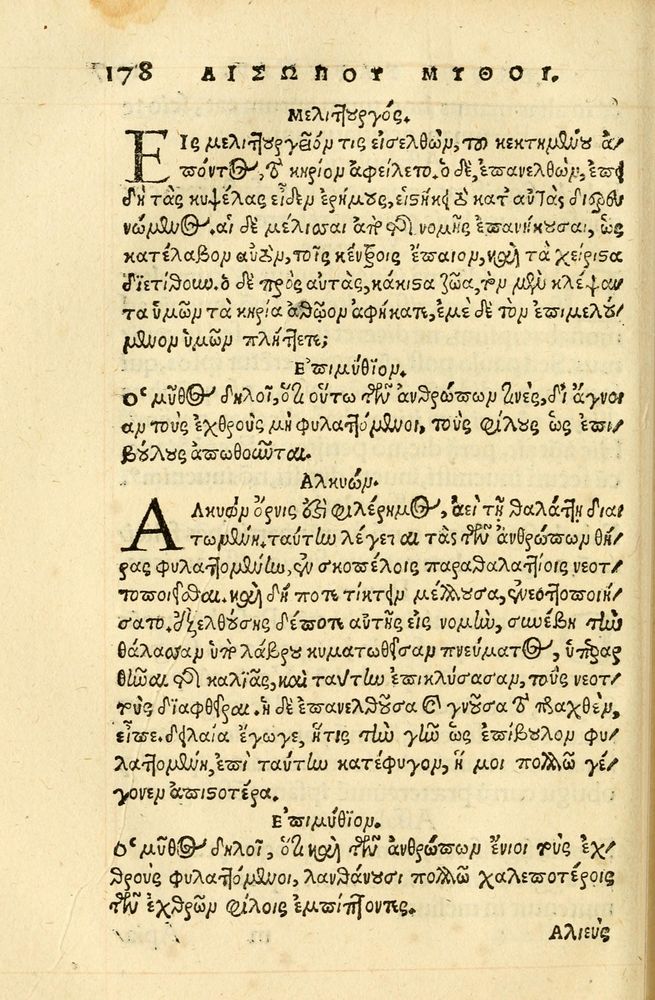 178 ΑΙΣΩΠΟΥ ΜΥΘΟΙ.
Μελιτουργός.
Εἰς μελιτουργεῖόν τις εἰσελθὼν, τοῦ κεκτημένου ἀ-
πόντος, τὸ κηρίον ἀφείλετο. ὁ δὲ, ἐπανελθὼν, ἐπει-
δὴ τὰς κυψέλας εἶδεν ἐρήμους, εἱστήκει τὸ κατ' αὐτὰς διερευ-
νώμενος. αἱ δὲ μέλισσαι ἀπὸ τῆς νομῆς ἐπανήκουσαι, ὡς
κατέλαβον αὐτὸν, τοῖς κέντροις ἔπαιον, καὶ τὰ χείριστα
διετίθουν. ὁ δὲ πρὸς αὐτὰς, κάκιστα ζῶα, τὸν μὲν κλέψαν-
τα ὑμῶν τὰ κηρία ἀθῶον ἀφήκατε, ἐμὲ δὲ τὸν ἐπιμελού-
μενον ὑμῶν πλήττετε;
Ἐπιμύθιον.
Ὁ μῦθος δηλοῖ, ὅτι οὕτω τῶν ἀνθρώπων τινὲς, δι' ἄγνοι-
αν τοὺς ἐχθροὺς μὴ φυλαττόμενοι, τοὺς φίλους ὡς ἐπι-
βούλους ἀπωθοῦνται.
Ἀλκυών.
Ἀλκυὼν ὄρνις ἐστὶ φιλέρημος, ἀεὶ τῇ θαλάττῃ διαι-
τωμένη. ταύτην λέγεται τὰς τῶν ἀνθρώπων θή-
ρας φυλαττομένην, ἐν σκοπέλοις παραθαλαττίοις νεοτ-
τοποιεῖσθαι. καὶ δή ποτε τίκτειν μέλλουσα, ἐνεοττοποιή-
σατο. ἐξελθούσης δέ ποτε αὐτῆς εἰς νομὴν, συνέβη τὴν
θάλασσαν ὑπὸ λάβρου κυματωθεῖσαν πνεύματος, ὑπεραρ-
θῆναι τῆς καλιᾶς, καὶ ταύτην ἐπικλύσασαν, τοὺς νεοτ-
τοὺς διαφθεῖραι. ἡ δὲ ἐπανελθοῦσα καὶ γνοῦσα τὸ πραχθὲν,
εἶπε. δειλαία ἔγωγε, ἥτις τὴν γῆν ὡς ἐπίβουλον φυ-
λαττομένη, ἐπὶ ταύτην κατέφυγον, ἥ μοι πολλῷ γέ-
γονεν ἀπιστοτέρα.
Ἐπιμύθιον.
Ὁ μῦθος δηλοῖ, ὅτι καὶ τῶν ἀνθρώπων ἔνιοι τοὺς ἐχ-
θροὺς φυλαττόμενοι, λανθάνουσι πολλῷ χαλεποτέροις
τῶν ἐχθρῶν φίλοις ἐμπίπτοντες.
Ἁλιεὺς